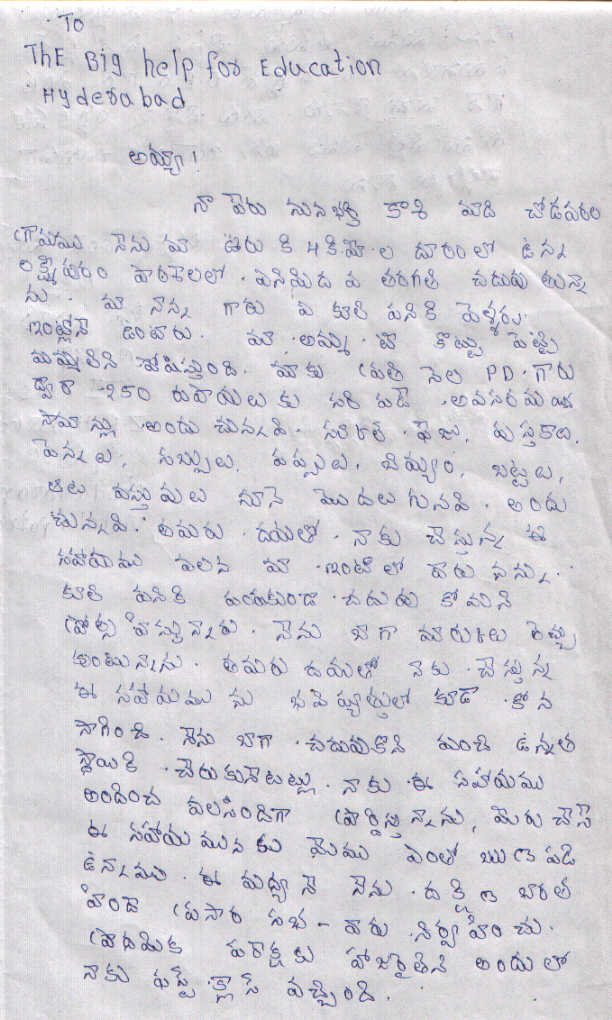 To
ThE Big help for Education
Hyderabad
అయ్యా!
నా పేరు కాశి మాది చోడవరం
గ్రామము నేను మా ఊరు కి 4 కి.మీ.ల దూరంలో ఉన్న
లక్ష్మీపురం పాఠశాలలో. ఎనిమిద వ తరగతి చదువు తున్నా
ను. మా నాన్న గారు ఏ కూలి పనికి వెళ్ళరు.
ఇంట్లోనే ఉంటారు. మా అమ్మ. టీ కొట్టు పెట్టి
మమ్మల్ని పోషిస్తుంది. మాకు ప్రతి నెల PD. గారు
ద్వారా 250 రుపాయలు కు సరి పడే. అవసరమయిన
సామాన్లు అందు చున్నవి. పేజు, పుస్తకాలు.
పెన్నులు, సబ్బులు, పప్పులు, బియ్యం, బట్టలు,
తల నూనె మొదలగునవి. అందు
చున్నవి. తమరు దయతో. నాకు చేస్తున్న ఈ
సహాయము వలన మా ఇంటిలో వారు నన్ను.
కూలి పనికి పంపకుండా చదువు కోమని
ప్రోత్స హిస్తున్నారు. నేను బాగా మారుకులు తెచ్చు
కుంటున్నాను. తమరు దయతో నాకు. చేస్తున్న
ఈ సహాయము ను భవిష్యత్తులో కూడా కోన
సాగించి. నేను బాగా చదువుకొని మంచి ఉన్నత
స్థాయికి చేరుకునేటట్లు. నాకు ఈ సహాయము
అందించ వలసిందిగా ప్రార్థిస్తున్నాను, మీరు చేసే
ఈ సహాయ మునకు మేము ఎంతో ఋణ పడి
ఉన్నాము. ఈ మధ్యా నే నేను. దక్షిణ భారత
హిందీ ప్రచార సభ - వారు నిర్వహించు.
ప్రాథమిక పరీక్షకు హాజరైతిని అందులో
నాకు ఫస్ట్ క్లాస్ వచ్చింది.